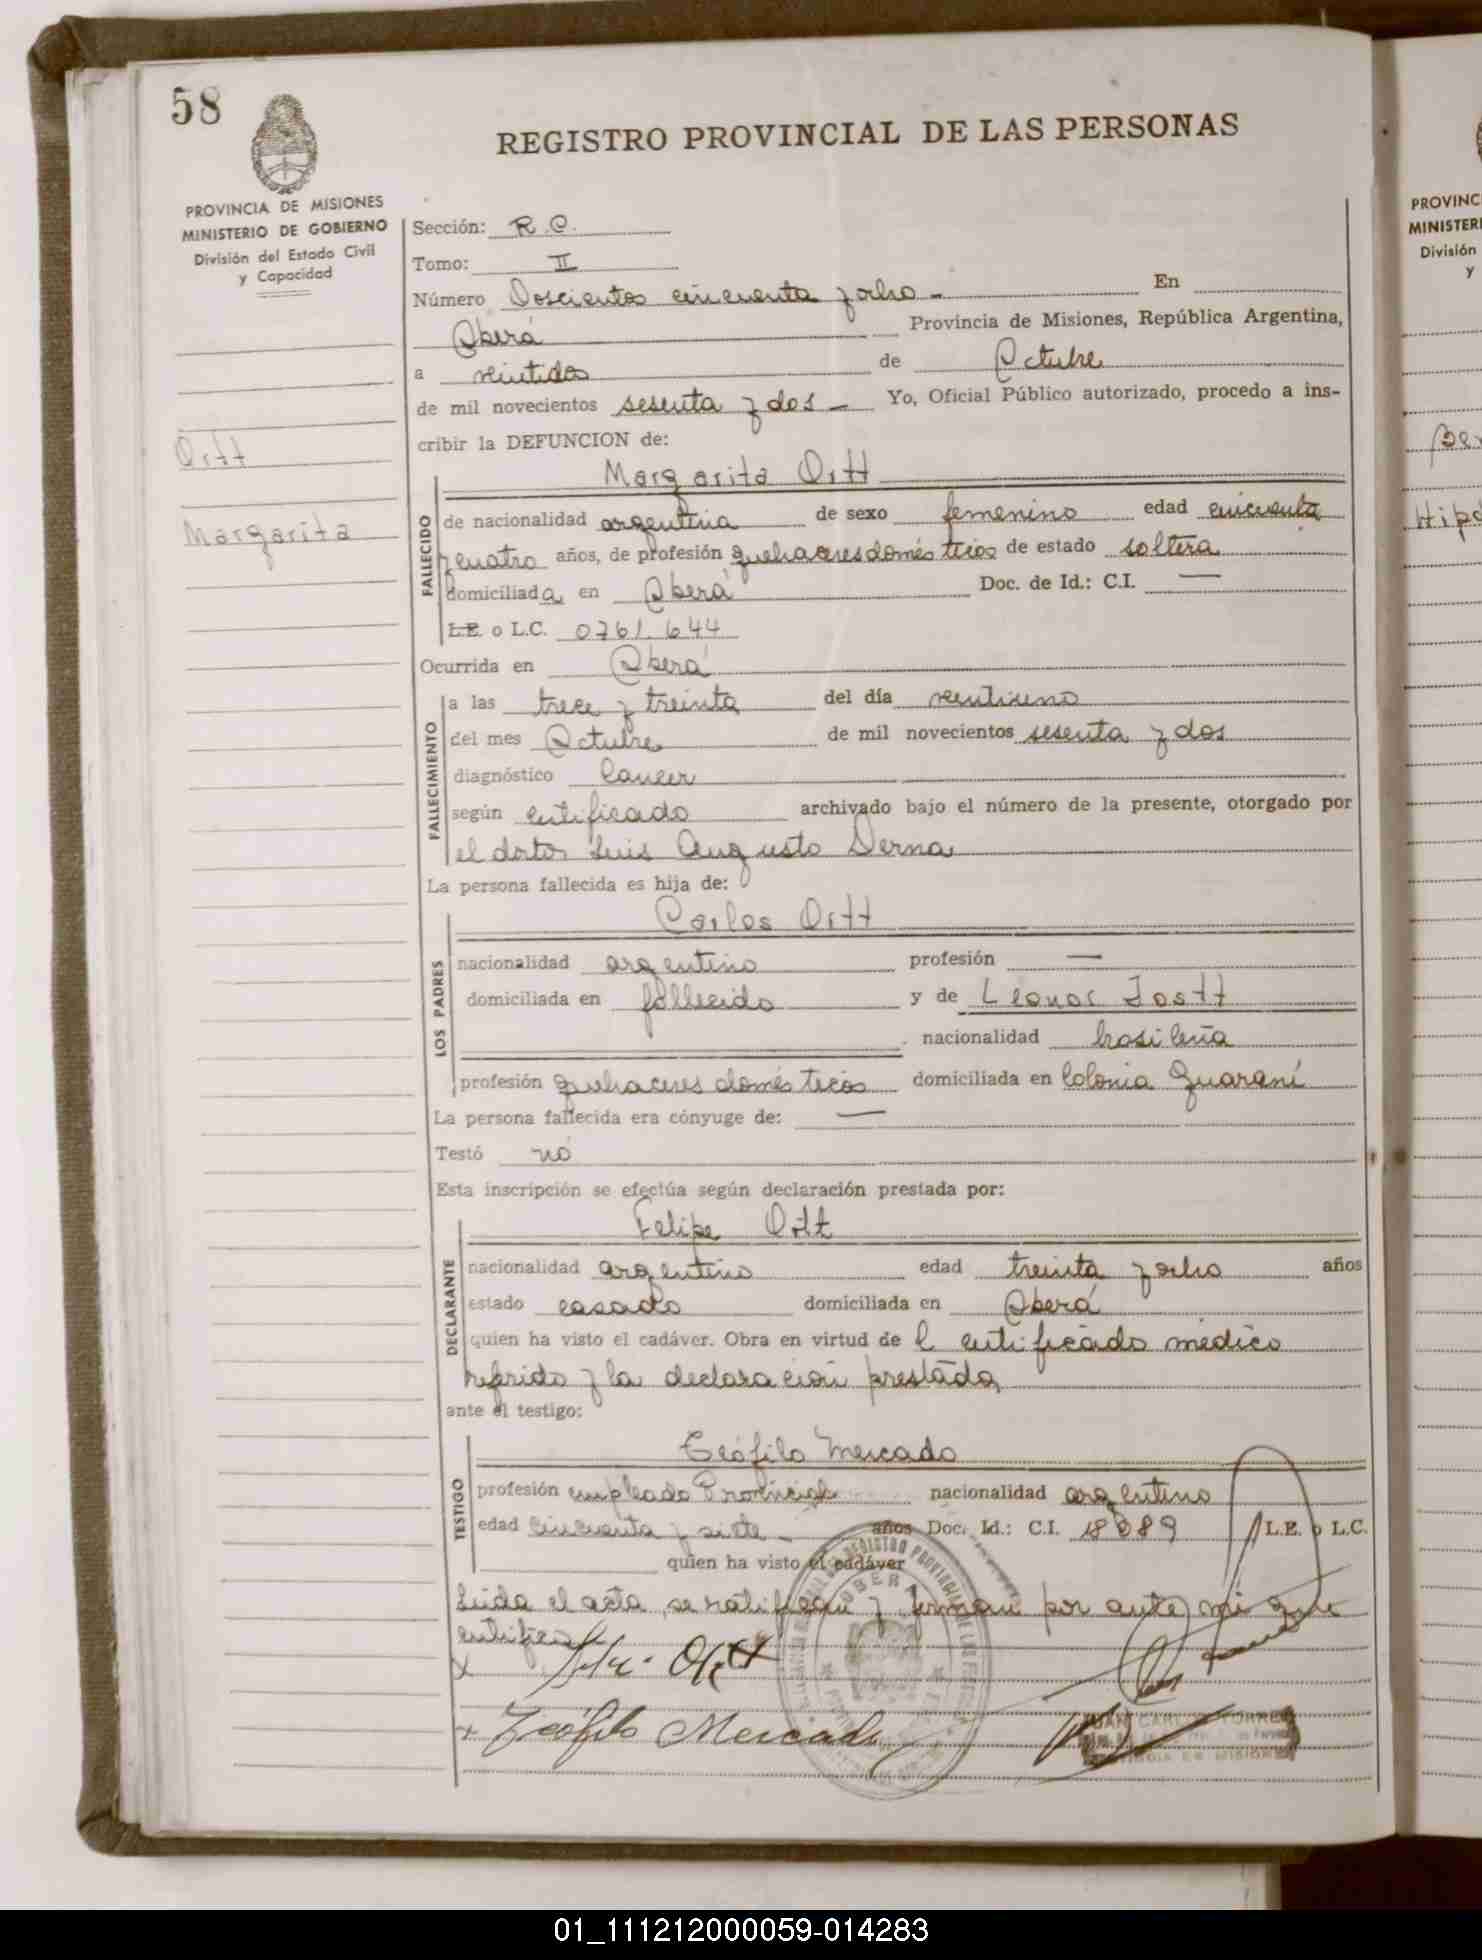 58
REGISTRO PROVINCIAL DE LAS PERSONAS
PROVINCIA DE MISIONES
MINISTERIO DE GOBIERNO
División del Estado Civil
y Capacidad
Ortt
Margarita
Sección: R.C.
Tomo: II
Número Doscientos cincuenta y ocho - En
Oberá Provincia de Misiones, República Argentina,
a veintidos de Octubre
de mil novecientos sesenta y dos - Yo, Oficial Público autorizado, procedo a ins-
cribir la DEFUNCION de:
Margarita Ortt
FALLECIDO
de nacionalidad argentina de sexo femenino edad cincuenta
y cuatro años, de profesión quehaceres domésticos de estado soltera
domiciliada en Oberá Doc. de Id.: C.I. —
L.E. o L.C. 0761.644
Ocurrida en Oberá
FALLECIMIENTO
a las trece y treinta del día veintiuno
del mes Octubre de mil novecientos sesenta y dos
diagnóstico Cancer
según certificado archivado bajo el número de la presente, otorgado por
el doctor Luis Augusto Derna
La persona fallecida es hija de:
Carlos Ortt
LOS PADRES
nacionalidad argentino profesión —
domiciliada en fallecido y de Leonor Jostt
nacionalidad brasileña
profesión quehaceres domésticos domiciliada en Colonia Guaraní
La persona fallecida era cónyuge de: —
Testó no
Esta inscripción se efectúa según declaración prestada por:
Felipe Ortt
DECLARANTE
nacionalidad argentino edad treinta y ocho años
estado casado domiciliada en Oberá
quien ha visto el cadáver. Obra en virtud de l certificado médico
referido y la declaración prestada
ante el testigo:
Teófilo Mercado
TESTIGO
profesión empleado Provincial nacionalidad argentino
edad cincuenta y siete - años Doc. Id.: C.I. 18089 L.E. o L.C.
quien ha visto el cadáver
Leida el acta, se ratifican y firman por ante mi que
certifico
x Ortt
x Teófilo Mercado
JUAN CARLOS TORRES
OBERA
PROVINC
MINISTERI
División
y
Hipo
01_111212000059-014283